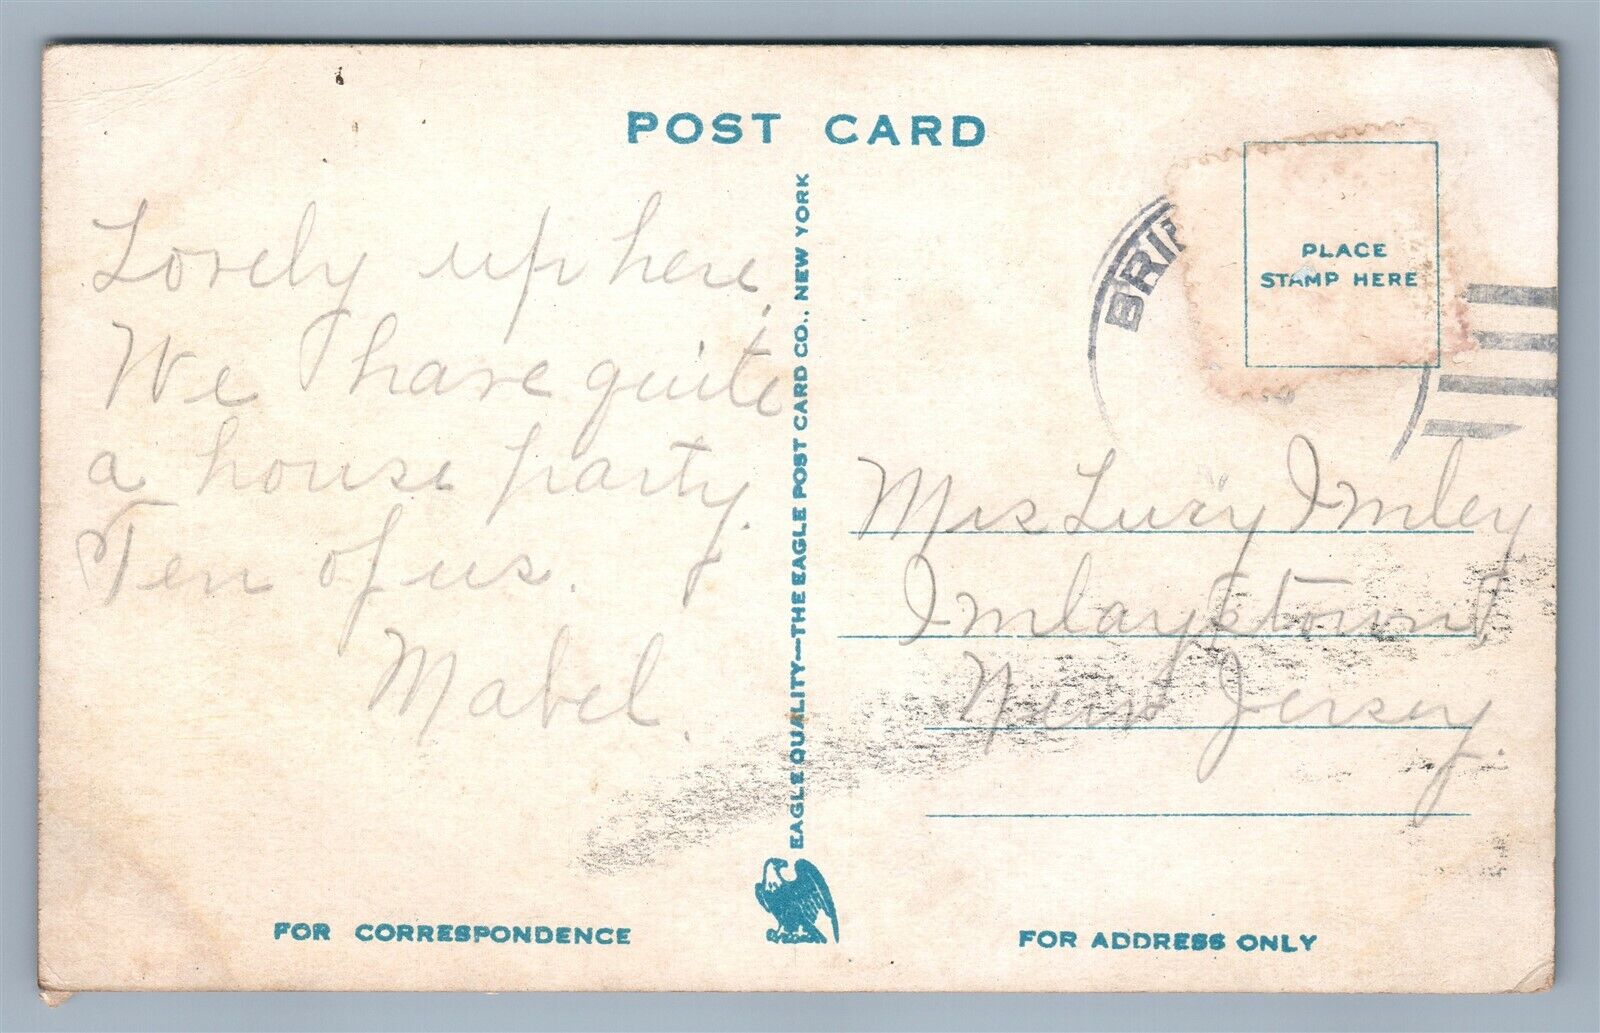 POST CARD
Lovely up here.
We have quite
a house party.
Ten of us.
Mabel.
EAGLE QUALITY—THE EAGLE POST CARD CO., NEW YORK
PLACE
STAMP HERE
Mrs Lucy Imley
Imlaystown
New Jersey.
FOR CORRESPONDENCE
FOR ADDRESS ONLY